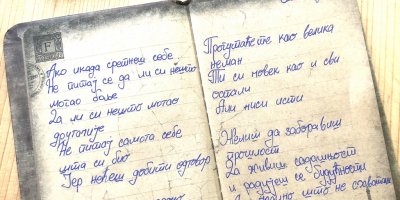 F
Ако икада сретнеш себе
Не питај се да ли си нешто
могао боље
Да ли си нешто могао
другачије
Не питај самога себе
шта си био
Јер нећеш добити одговор
Прогутаће те као велика
неман
Ти си човек као и сви
остали
Али ниси исти
Желиш да заборавиш
прошлост
Да живиш садашњост
и радујеш се будућности
што не схваташ